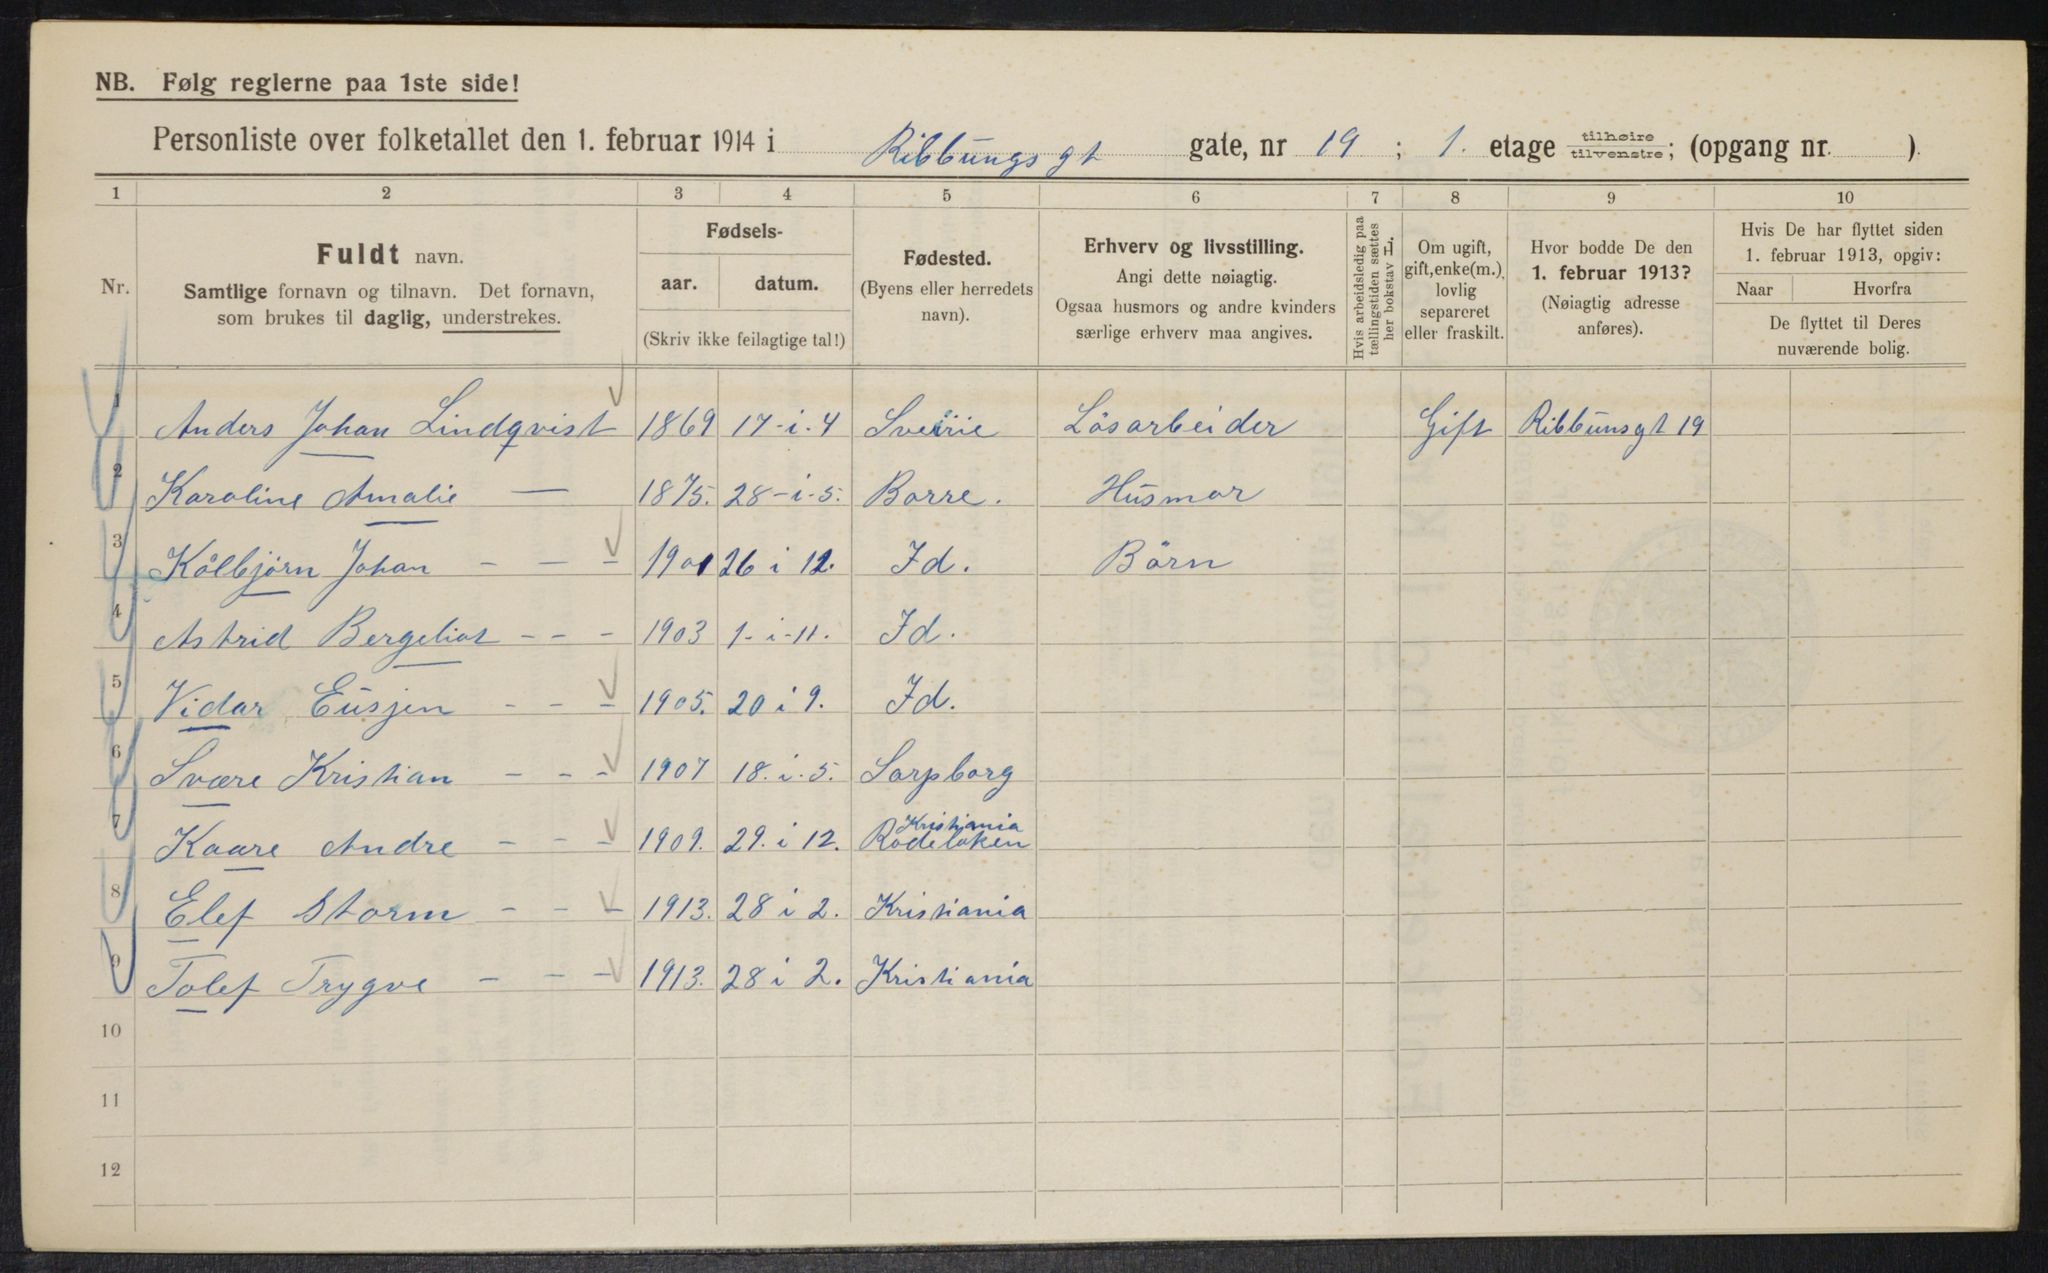 NB. Følg reglerne paa 1ste side!
Personliste over folketallet den 1. februar 1914 i Ribbungs gt gate, nr 19 ; 1. etage tilhøire/tilvenstre; (opgang nr. ).
1 2 3 4 5 6 7 8 9 10
Nr.
Fuldt navn.
Samtlige fornavn og tilnavn. Det fornavn,
som brukes til daglig, understrekes.
Fødsels-
aar. datum.
(Skriv ikke feilagtige tal!)
Fødested.
(Byens eller herredets
navn).
Erhverv og livsstilling.
Angi dette nøiagtig.
Ogsaa husmors og andre kvinders
særlige erhverv maa angives.
Hvis arbeidsledig paa
tællingstiden sættes
her bokstav L.
Om ugift,
gift, enke(m.),
lovlig
separeret
eller fraskilt.
Hvor bodde De den
1. februar 1913?
(Nøiagtig adresse
anføres).
Hvis De har flyttet siden
1. februar 1913, opgiv:
Naar Hvorfra
De flyttet til Deres
nuværende bolig.
1 Anders Johan Lindqvist 1869 17-i-4 Sveirie Lösarbeider Gift Ribbunsgt 19
2 Karoline Amalie — 1875. 28-i-5. Borre. Husmor
3 Kolbjørn Johan - - - 1901 26 i 12. Id. Börn
4 Astrid Bergeliot - - - 1903 1-i-11. Id.
5 Vidar Eusjen - - - 1905. 20 i 9. Id.
6 Svære Kristian - - - 1907 18. i. 5. Sarpborg
7 Kaare Andre - - - 1909. 29. i 12. Kristiania
Rodeløken
8 Elef Storm - - - 1913. 28 i 2. Kristiania
9 Tolef Trygve - - - 1913. 28 i 2. Kristiania
10
11
12